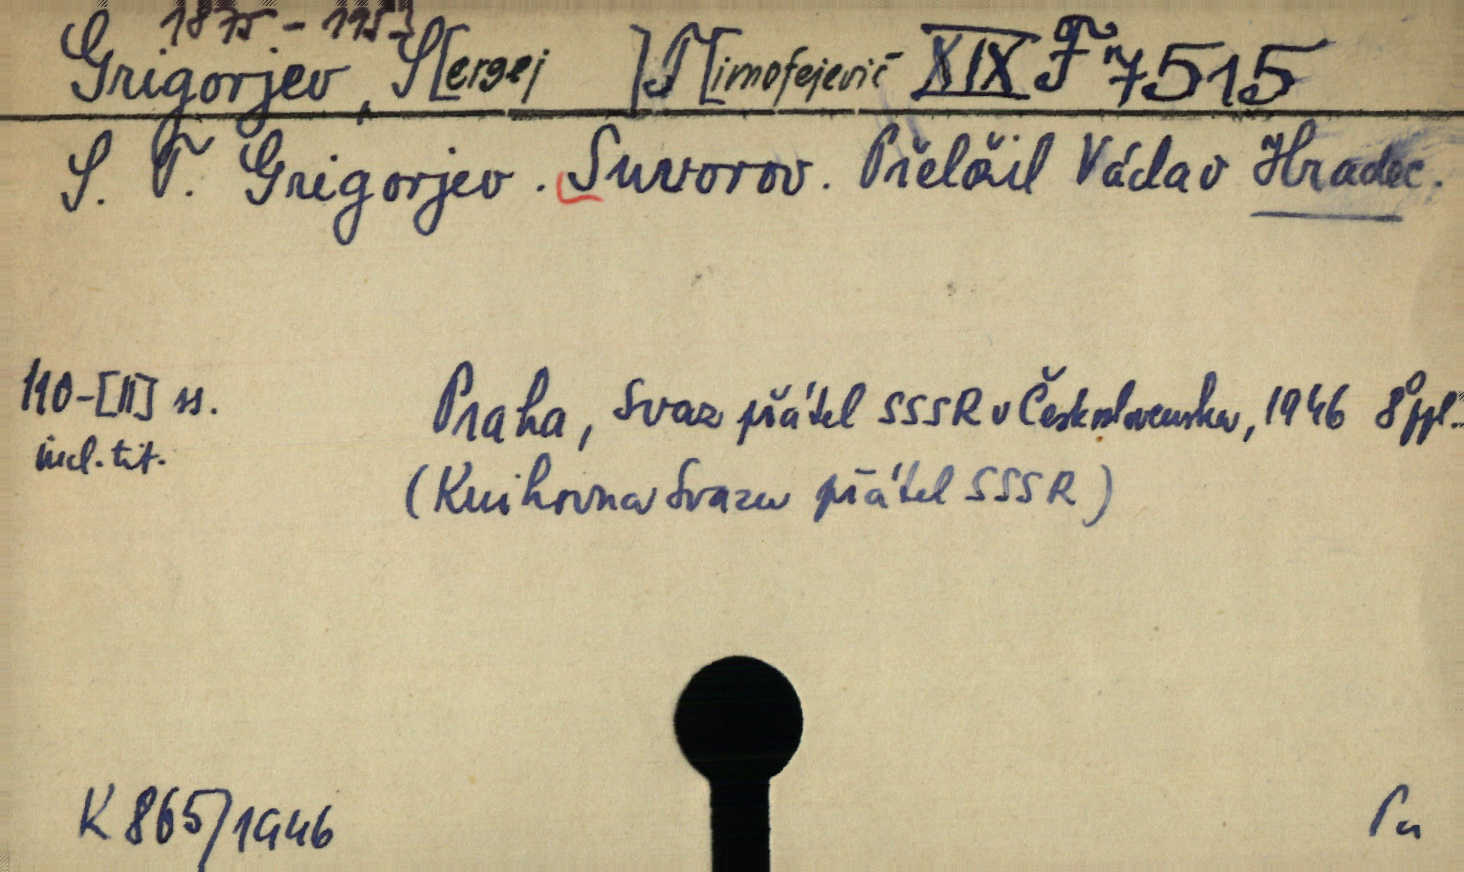 1875 - 1953
Grigorjev, S[ergej ] T[imofejevič XIX F 7515
S. T. Grigorjev. Suvorov. Přeložil Václav Hradec.
110-[II] ss.
incl. tit.
Praha, Svaz přátel SSSR v Československu, 1946 8°
(Knihovna Svazu přátel SSSR)
K 865/1946